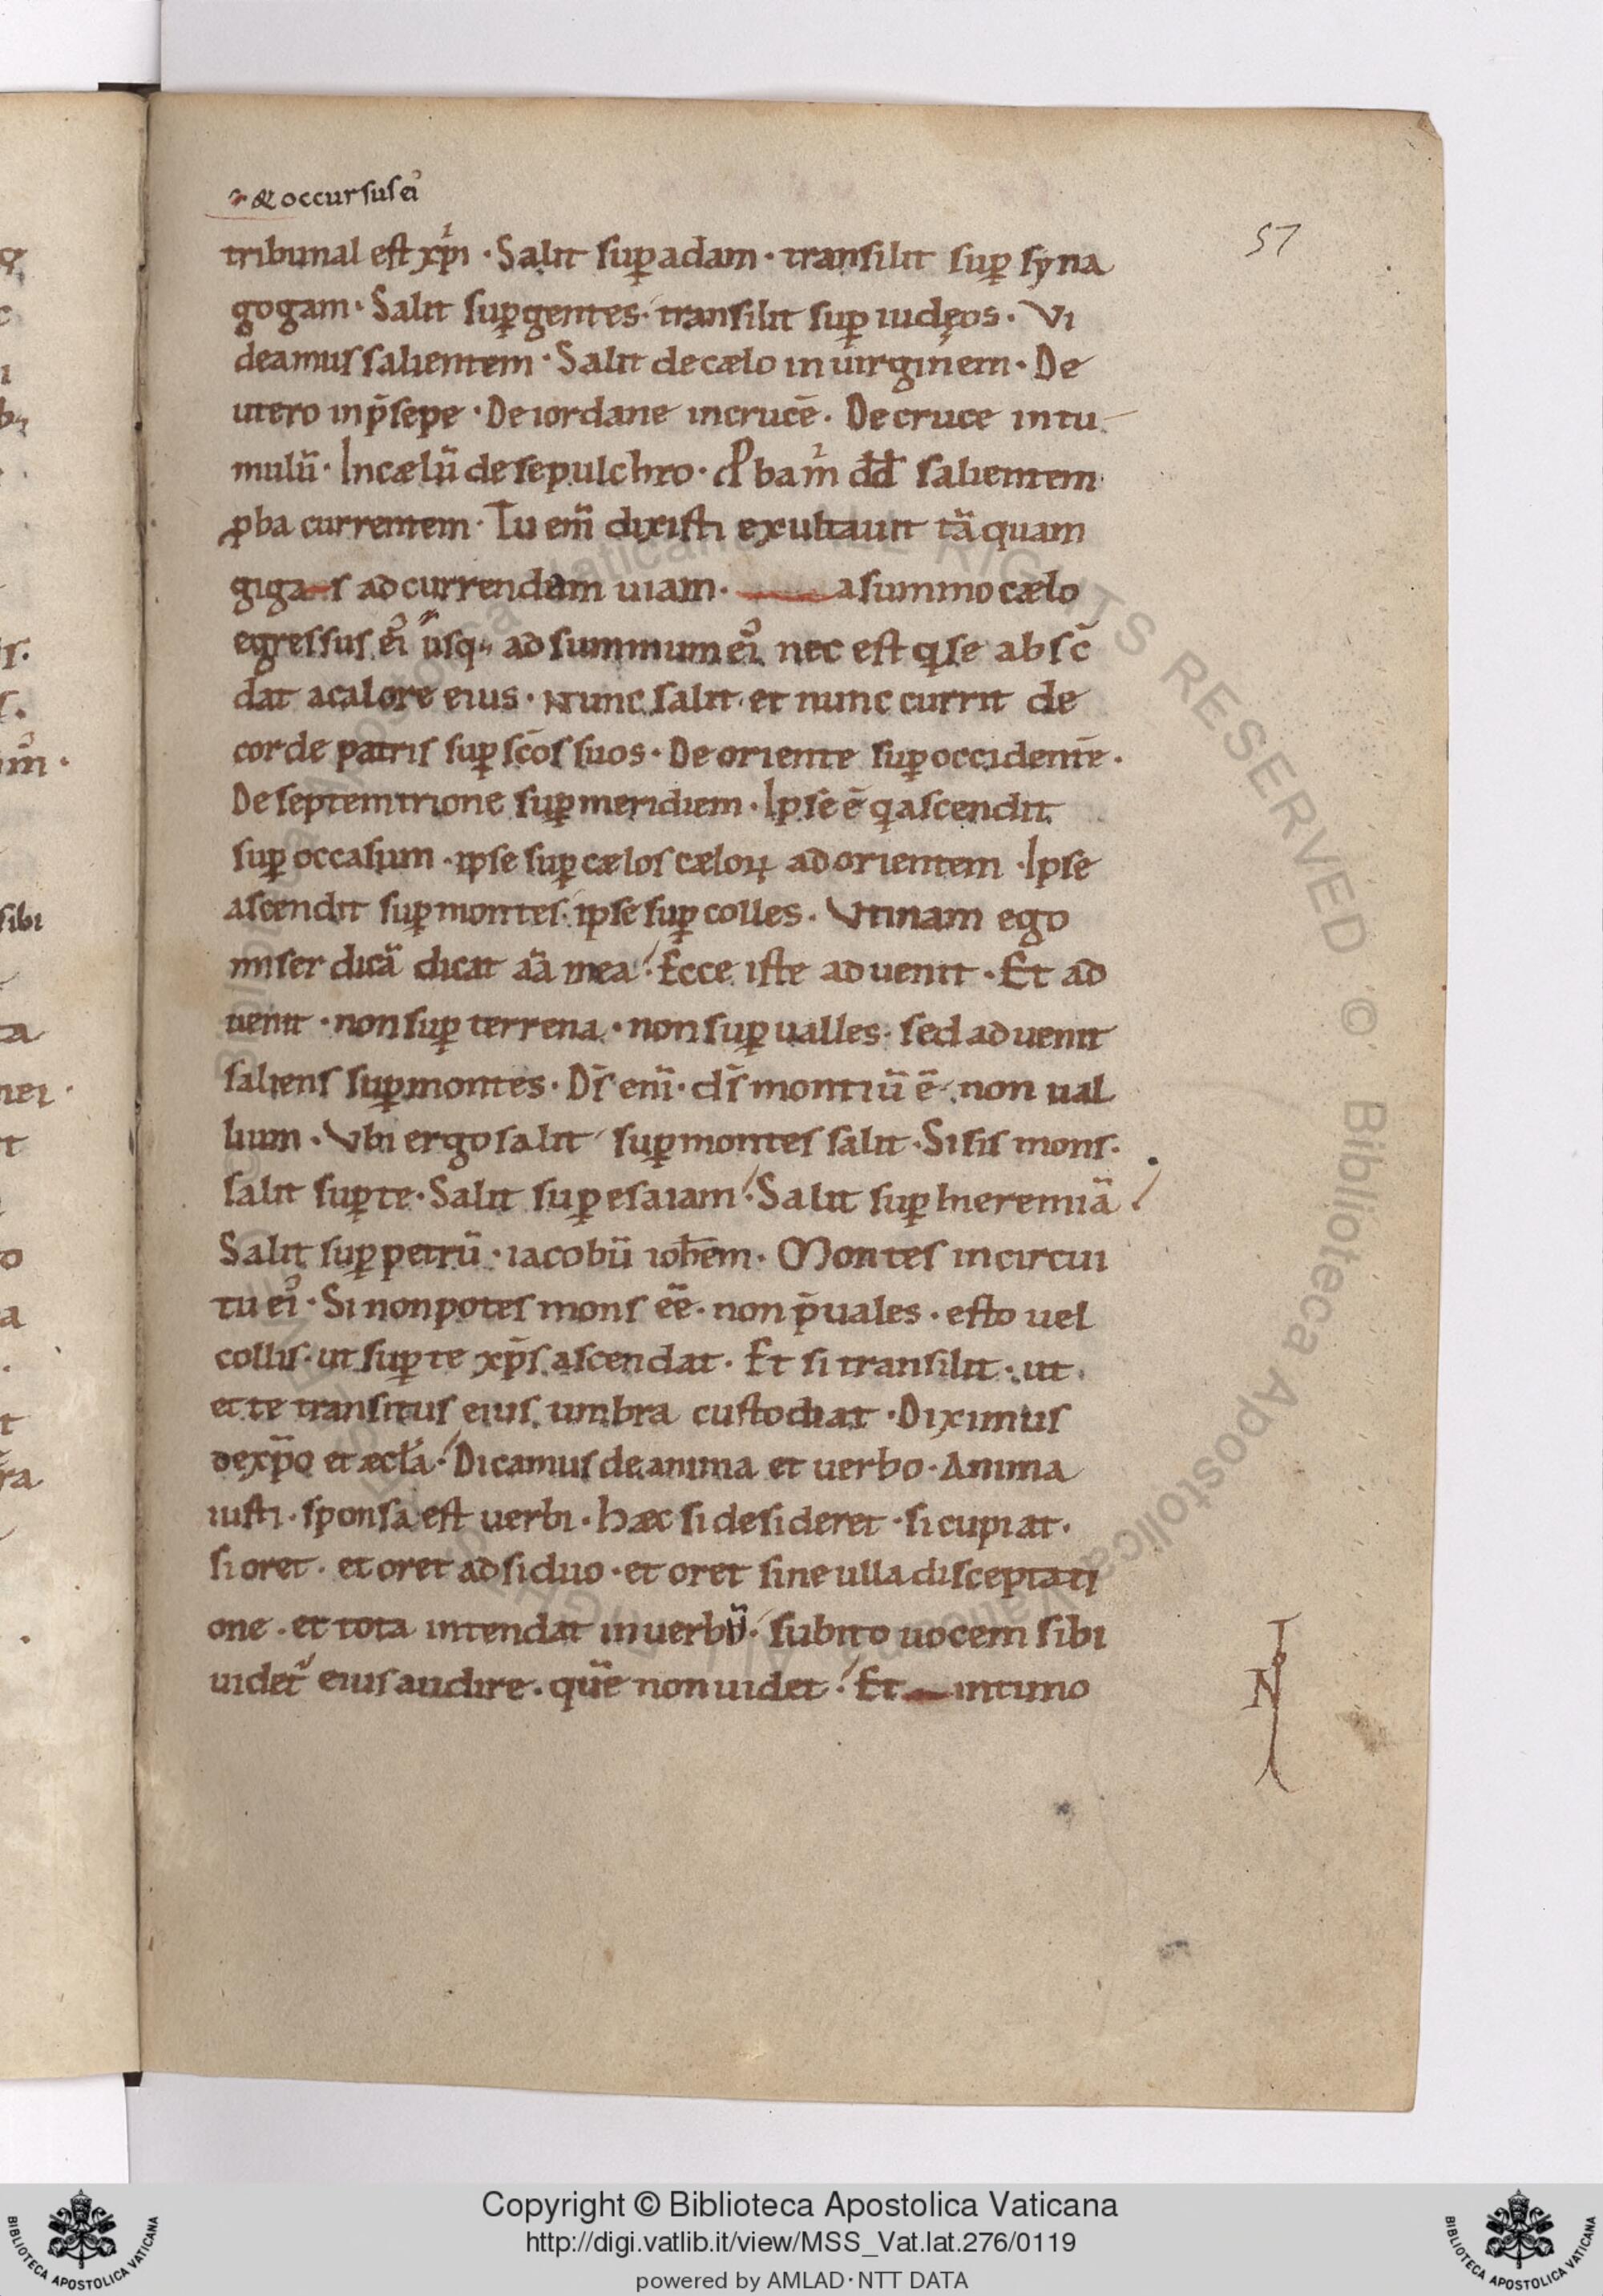 & occursus ei᾽
57
tribunal est xp̄i · Salit suꝑ adam · transilit suꝑ syna
gogam · Salit suꝑ gentes · transilit suꝑ iudęos · Vi
deamus salientem · Salit de cælo in uirginem · De
utero in p̄sepe · De iordane in crucē · De cruce in tu
mulū · In cælū de sepulchro · ꝓbam̄ dd̄ salientem
ꝓba currentem · Tu eni̅ dixisti exultauit tā quam
gigas ad currendam uiam · a summo cælo
egressus ei᾽ usq; ad summum ei᾽ nec est q̇ se absc̄
dat a calore eius · Nunc salit et nunc currit de
corde patris suꝑ sc̄os suos · De oriente suꝑ occidentē ·
De septemtrione suꝑ meridiem · Ipse ē q̇ ascendit
suꝑ occasum · ipse suꝑ cælos cæloꝝ ad orientem · Ipse
ascendit suꝑ montes · ipse suꝑ colles · Vtinam ego
miser dicā dicat aā mea · Ecce iste aduenit · Et ad
uenit · non suꝑ terrena · non suꝑ ualles · sed aduenit
saliens suꝑ montes · Dˉs eni̅ · dˉs montiū ē · non ual
lium · Vbi ergo salit suꝑ montes salit · Si sis mons ·
salit suꝑ te · Salit suꝑ esaiam · Salit suꝑ hieremiā
Salit suꝑ petrū · iacobū ioh̄em · Montes in circui
tu ei᾽ · Si non potes mons eē · non p̄uales · esto uel
collis · ut suꝑ te xp̄s ascendat · Et si transilit · ut
et te transitus eius umbra custodiat · Diximus
de xp̄o et æcl̄a · Dicamus de anima et uerbo · Anima
iusti · sponsa est uerbi · hæc si desideret · si cupiat ·
si oret · et oret adsiduo · et oret sine ulla disceptati
one · et tota intendat in uerbū · subito uocem sibi
uidet᾽ eius audire · quē non uidet · Et intimo
N
Copyright © Biblioteca Apostolica Vaticana
http://digi.vatlib.it/view/MSS_Vat.lat.276/0119
powered by AMLAD·NTT DATA
BIBLIOTECA APOSTOLICA VATICANA
BIBLIOTECA APOSTOLICA VATICANA